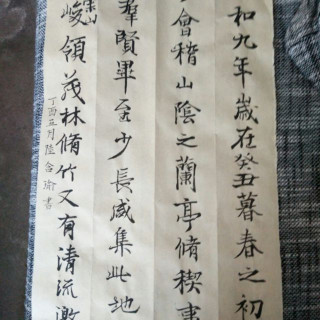 和九年歲在癸丑暮春之初
會稽山陰之蘭亭脩稧事
羣賢畢至少長咸集此地
崇山
峻領茂林脩竹又有清流激
丁酉五月陸含瑜書